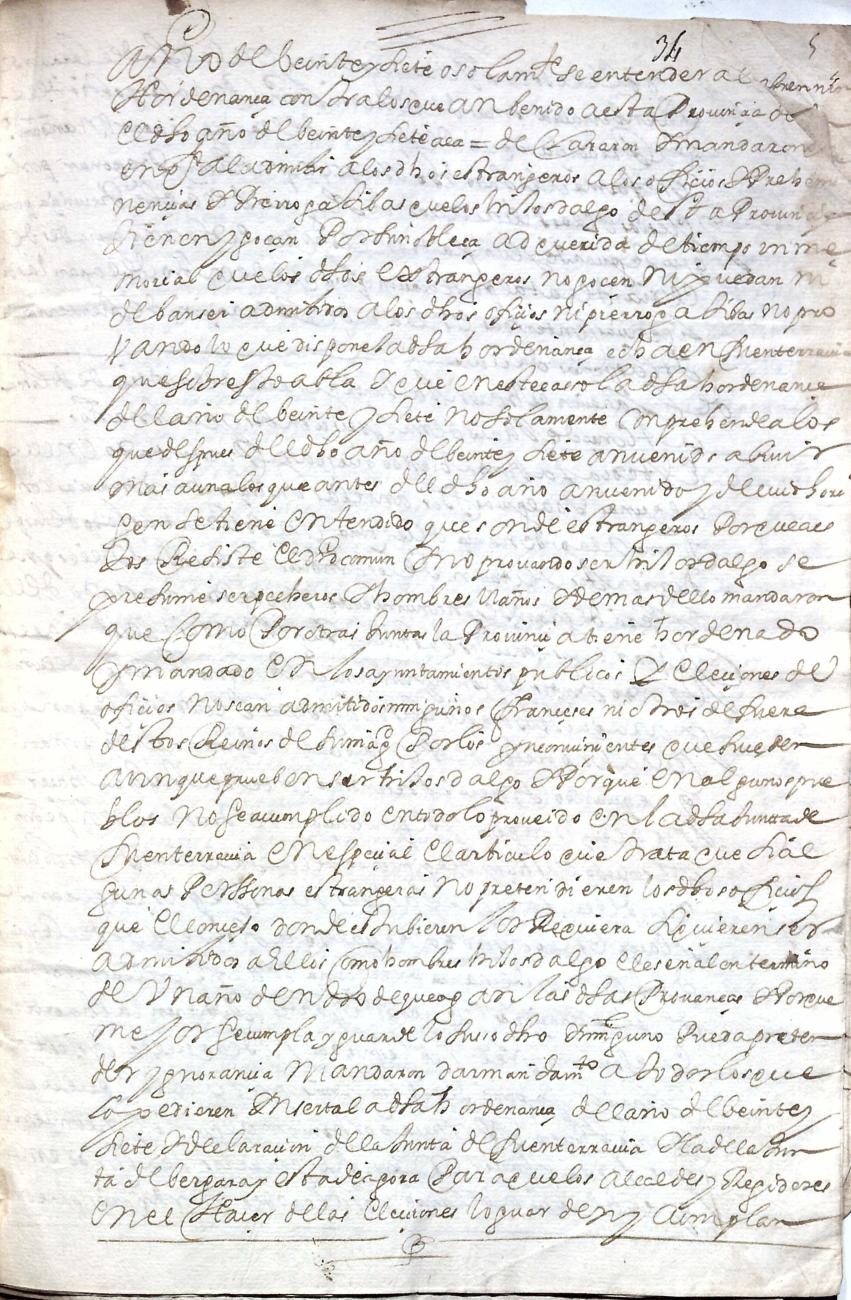 34 5
año del beinte y siete o solamte se entendera la
Hordenança contra los que an benido a esta Provinçia de
el dho año del beinte y siete aca = declararon E mandaron
en Rçon al admitir a los dhos estrangeros a los ofiçios E Prehemi
nençias E Prerrogatibas que los hijosdalgo desta Provinçia
tienen y goçan Por su nobleça adquerida de tiempo inme
morial que los dhos estrangeros no gocen ni puedan ni
deban ser admitidos a los dhos ofiçios ni prerrogatibas no pro
vando lo que dispone la dha hordenança echa en fuenterravia
que sobresto abla E que en este caso la dha hordenança
del año del beinte y siete no solamente comprehende a los
que despues del dho año del beinte y siete an venido a bivir
mas aun a los que antes del dho año an venido y de cuio hori
gen se tiene entendido que son de estrangeros Porque a es
tos Resiste el dro comun E no provando ser hijosdalgo se
presume ser pecheros E hombres llanos E demas dello mandaron
que Como Por otras Juntas la Provinçia tiene hordenado
y mandado En los ayuntamientos publicos E Elecçiones de
ofiçios no sean admitidos ningunos françeses ni otros de fuera
destos Reinos de su magd Por los ynconvinientes que suçeden
aunque prueben ser hijosdalgo E Porque En algunos pue
blos no se a cumplido en todo lo proveido en la dha Junta de
fuenterravia En espeçial El articulo que trata que si al
gunas Perssonas estrangeras no pretendieren los dhos ofiçios
que el conçejo donde estubieren los Requiera si quieren ser
admitidos a Ellos Como hombres hijosdalgo e les señalen termino
de Un año dentro de que agan las dhas Provanças E Porque
mejor se cumpla y guarde lo suso dho E ninguno Pueda preten
der ygnorançia Mandaron dar mandamto a todos los que
lo pedieren Inserta la dha hordenança del año del beinte y
siete E declaraçion de la Junta de fuenterravia E la de la Jun
ta de bergara y esta de agora Para que los alcaldes y Regidores
en el Haçer de las Elecçiones lo guarden y cumplan